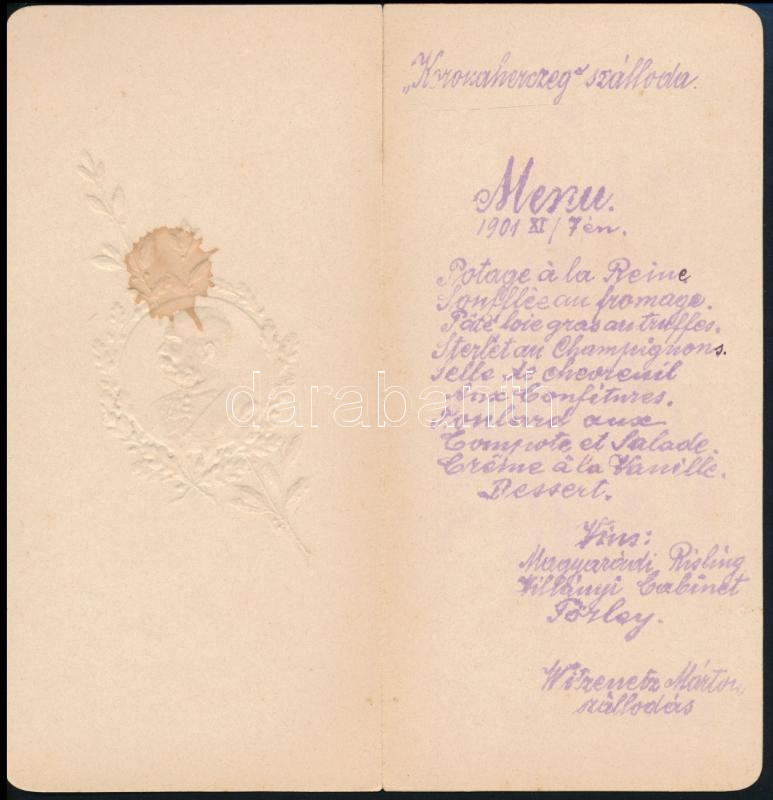 „Kronaherczeg" szálloda.
Menu.
1901 XI/7én.
Potage à la Reine
Soufflée au fromage.
Pâté foie gras au truffes.
Sterlet au Champignons.
selle de chevreuil
Aux Confitures.
Poulard aux
Compote et Salade.
Crême à la Vanille.
Dessert.
Vins:
Magyarádi Risling
Villányi Cabinet
Törley.
Witzenetz Márton
szállodás
darabanth